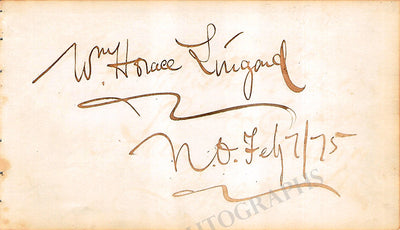 Wm Horace Lingard
N.O. Feby 7/75
AUTOGRAPHS